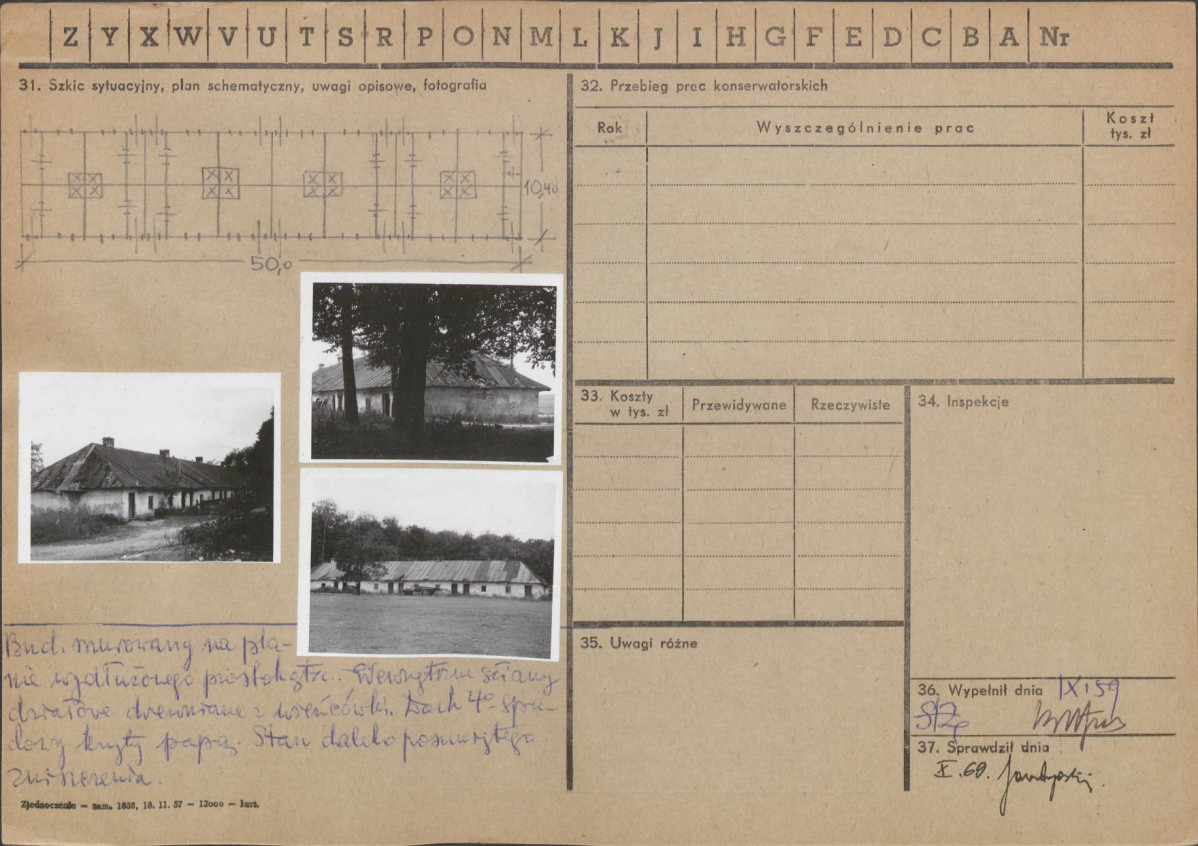 Z Y X W V U T S R P O N M L K J I H G F E D C B A Nr
31. Szkic sytuacyjny, plan schematyczny, uwagi opisowe, fotografia
10,40
50,0
Bud. murowany na pla-
nie wydłużonego prostokąta. Wewnętrzne ściany
działowe drewniane z wieńcówki. Dach 4º spa-
dowy kryty papą. Stan daleko posuniętego
zniszczenia.
Zjednoczenie – zam. 1858, 16. 11. 57 – 12000 – kart.
32. Przebieg prac konserwatorskich
Rok
Wyszczególnienie prac
Koszt
tys. zł
33. Koszty
w tys. zł
Przewidywane
Rzeczywiste
34. Inspekcje
35. Uwagi różne
36. Wypełnił dnia IX.59
37. Sprawdził dnia
X.69.